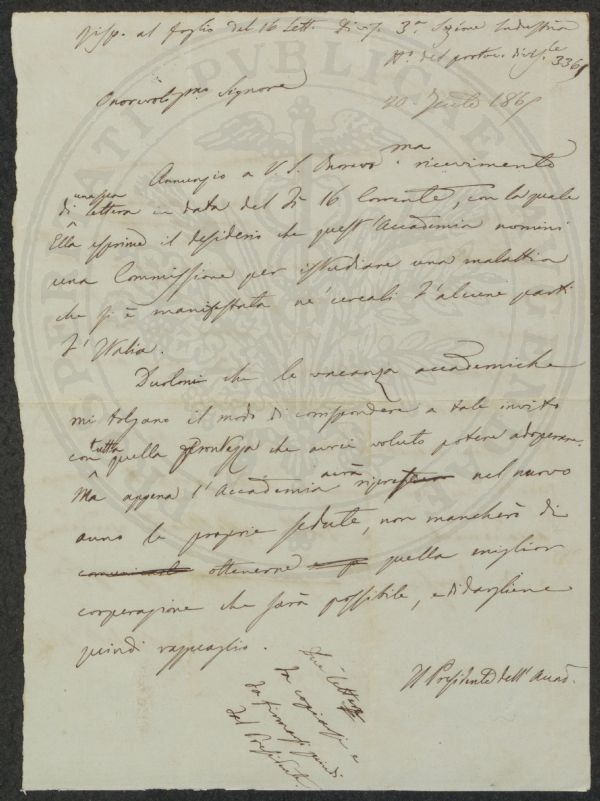 Risp. al foglio del 16 Lett. Div. 3ª Sezione Industria
Nº del protoc. div.le 3361
Onorevolmo Signore
20 1865
Annunzio a V. S. Onorevma ricevimento
di una sua lettera in data del dì 16 Corrente, con la quale
Ella esprime il desiderio che quest'Accademia nomini
una Commissione per istudiare una malattia
che si è manifestata ne' cereali d'alcune parti
d'Italia.
Duolmi che le vacanze accademiche
mi tolgano il modo di corrispondere a tale invito
con tutta quella prontezza che avrei voluto potere adoperare.
Ma appena l'Accademia avrà nel nuovo
anno le proprie sedute, non mancherò di
ottenerne quella miglior
cooperazione che sarà possibile, e di dargliene
quindi ragguaglio.
Il Presidente dell'Accad.
da copiarsi e
da firmarsi quindi
dal Presidente
PUBLICAE